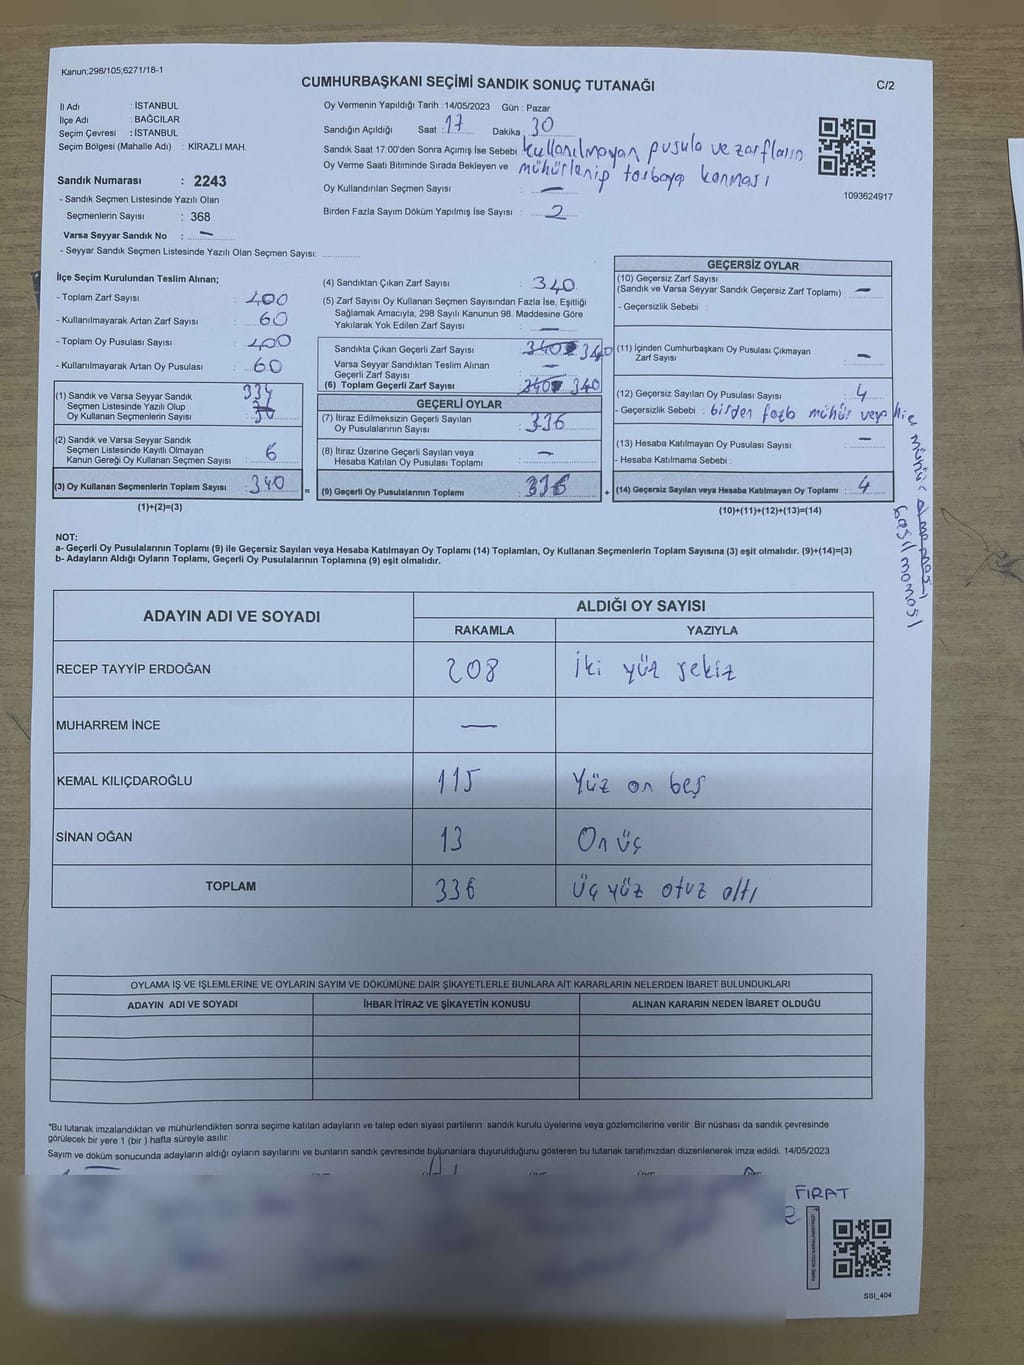 Kanun;298/105;6271/18-1
CUMHURBAŞKANI SEÇİMİ SANDIK SONUÇ TUTANAĞI
C/2
İl Adı : İSTANBUL
İlçe Adı : BAĞCILAR
Seçim Çevresi : İSTANBUL
Seçim Bölgesi (Mahalle Adı) : KİRAZLI MAH.
Sandık Numarası : 2243
- Sandık Seçmen Listesinde Yazılı Olan
Seçmenlerin Sayısı : 368
Varsa Seyyar Sandık No : —
- Seyyar Sandık Seçmen Listesinde Yazılı Olan Seçmen Sayısı:
Oy Vermenin Yapıldığı Tarih :14/05/2023 Gün : Pazar
Sandığın Açıldığı Saat : 17 Dakika : 30
Sandık Saat 17:00'den Sonra Açımış İse Sebebi : kullanılmayan pusula ve zarfların
Oy Verme Saati Bitiminde Sırada Bekleyen ve mühürlenip torbaya konması
Oy Kullandırılan Seçmen Sayısı : —
Birden Fazla Sayım Döküm Yapılmış İse Sayısı : 2
1093624917
İlçe Seçim Kurulundan Teslim Alınan;
- Toplam Zarf Sayısı : 400
- Kullanılmayarak Artan Zarf Sayısı : 60
- Toplam Oy Pusulası Sayısı : 400
- Kullanılmayarak Artan Oy Pusulası : 60
(1) Sandık ve Varsa Seyyar Sandık
Seçmen Listesinde Yazılı Olup
Oy Kullanan Seçmenlerin Sayısı : 334
(2) Sandık ve Varsa Seyyar Sandık
Seçmen Listesinde Kayıtlı Olmayan
Kanun Gereği Oy Kullanan Seçmen Sayısı : 6
(3) Oy Kullanan Seçmenlerin Toplam Sayısı : 340
(1)+(2)=(3)
(4) Sandıktan Çıkan Zarf Sayısı : 340
(5) Zarf Sayısı Oy Kullanan Seçmen Sayısından Fazla İse, Eşitliği
Sağlamak Amacıyla; 298 Sayılı Kanunun 98. Maddesine Göre
Yakılarak Yok Edilen Zarf Sayısı : —
Sandıkta Çıkan Geçerli Zarf Sayısı : 340 340
Varsa Seyyar Sandıktan Teslim Alınan
Geçerli Zarf Sayısı : —
(6) Toplam Geçerli Zarf Sayısı : 340 340
GEÇERLİ OYLAR
(7) İtiraz Edilmeksizin Geçerli Sayılan
Oy Pusulalarının Sayısı : 336
(8) İtiraz Üzerine Geçerli Sayılan veya
Hesaba Katılan Oy Pusulası Toplamı : —
(9) Geçerli Oy Pusulalarının Toplamı : 336
=
+
GEÇERSİZ OYLAR
(10) Geçersiz Zarf Sayısı
(Sandık ve Varsa Seyyar Sandık Geçersiz Zarf Toplamı) : —
- Geçersizlik Sebebi :
(11) İçinden Cumhurbaşkanı Oy Pusulası Çıkmayan
Zarf Sayısı : —
(12) Geçersiz Sayılan Oy Pusulası Sayısı : 4
- Geçersizlik Sebebi : birden fazla mühür veya hiç
mühür
basılmaması
(13) Hesaba Katılmayan Oy Pusulası Sayısı : —
- Hesaba Katılmama Sebebi :
(14) Geçersiz Sayılan veya Hesaba Katılmayan Oy Toplamı : 4
(10)+(11)+(12)+(13)=(14)
NOT:
a- Geçerli Oy Pusulalarının Toplamı (9) ile Geçersiz Sayılan veya Hesaba Katılmayan Oy Toplamı (14) Toplamları, Oy Kullanan Seçmenlerin Toplam Sayısına (3) eşit olmalıdır. (9)+(14)=(3)
b- Adayların Aldığı Oyların Toplamı, Geçerli Oy Pusulalarının Toplamına (9) eşit olmalıdır.
ADAYIN ADI VE SOYADI ALDIĞI OY SAYISI
RAKAMLA YAZIYLA
RECEP TAYYİP ERDOĞAN 208 İki yüz sekiz
MUHARREM İNCE —
KEMAL KILIÇDAROĞLU 115 Yüz on beş
SİNAN OĞAN 13 On üç
TOPLAM 336 üç yüz otuz altı
OYLAMA İŞ VE İŞLEMLERİNE VE OYLARIN SAYIM VE DÖKÜMÜNE DAİR ŞİKAYETLERLE BUNLARA AİT KARARLARIN NELERDEN İBARET BULUNDUKLARI
ADAYIN ADI VE SOYADI İHBAR İTİRAZ VE ŞİKAYETİN KONUSU ALINAN KARARIN NEDEN İBARET OLDUĞU
*Bu tutanak imzalandıktan ve mühürlendikten sonra seçime katılan adayların ve talep eden siyasi partilerin sandık kurulu üyelerine veya gözlemcilerine verilir .Bir nüshası da sandık çevresinde
görülecek bir yere 1 (bir ) hafta süreyle asılır.
Sayım ve döküm sonucunda adayların aldığı oyların sayılarını ve bunların sandık çevresinde bulunanlara duyurulduğunu gösteren bu tutanak tarafımızdan düzenlenerek imza edildi. 14/05/2023
FIRAT
SSI_404